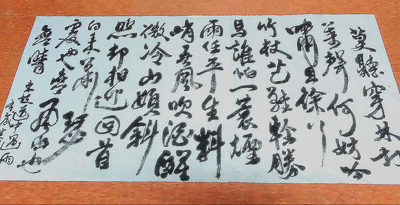 莫聽穿林打
葉聲何妨吟
嘯且徐行
竹杖芒鞋輕勝
馬誰怕一蓑煙
雨任平生料
峭春風吹酒醒
微冷山頭斜
照卻相迎回首
向來蕭瑟
處也無風雨也
無晴
東坡道中遇雨